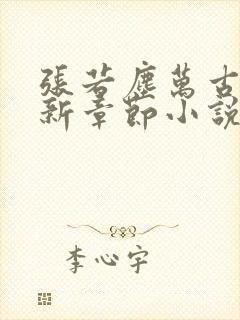 張若塵萬古
新章節小說
李心宇